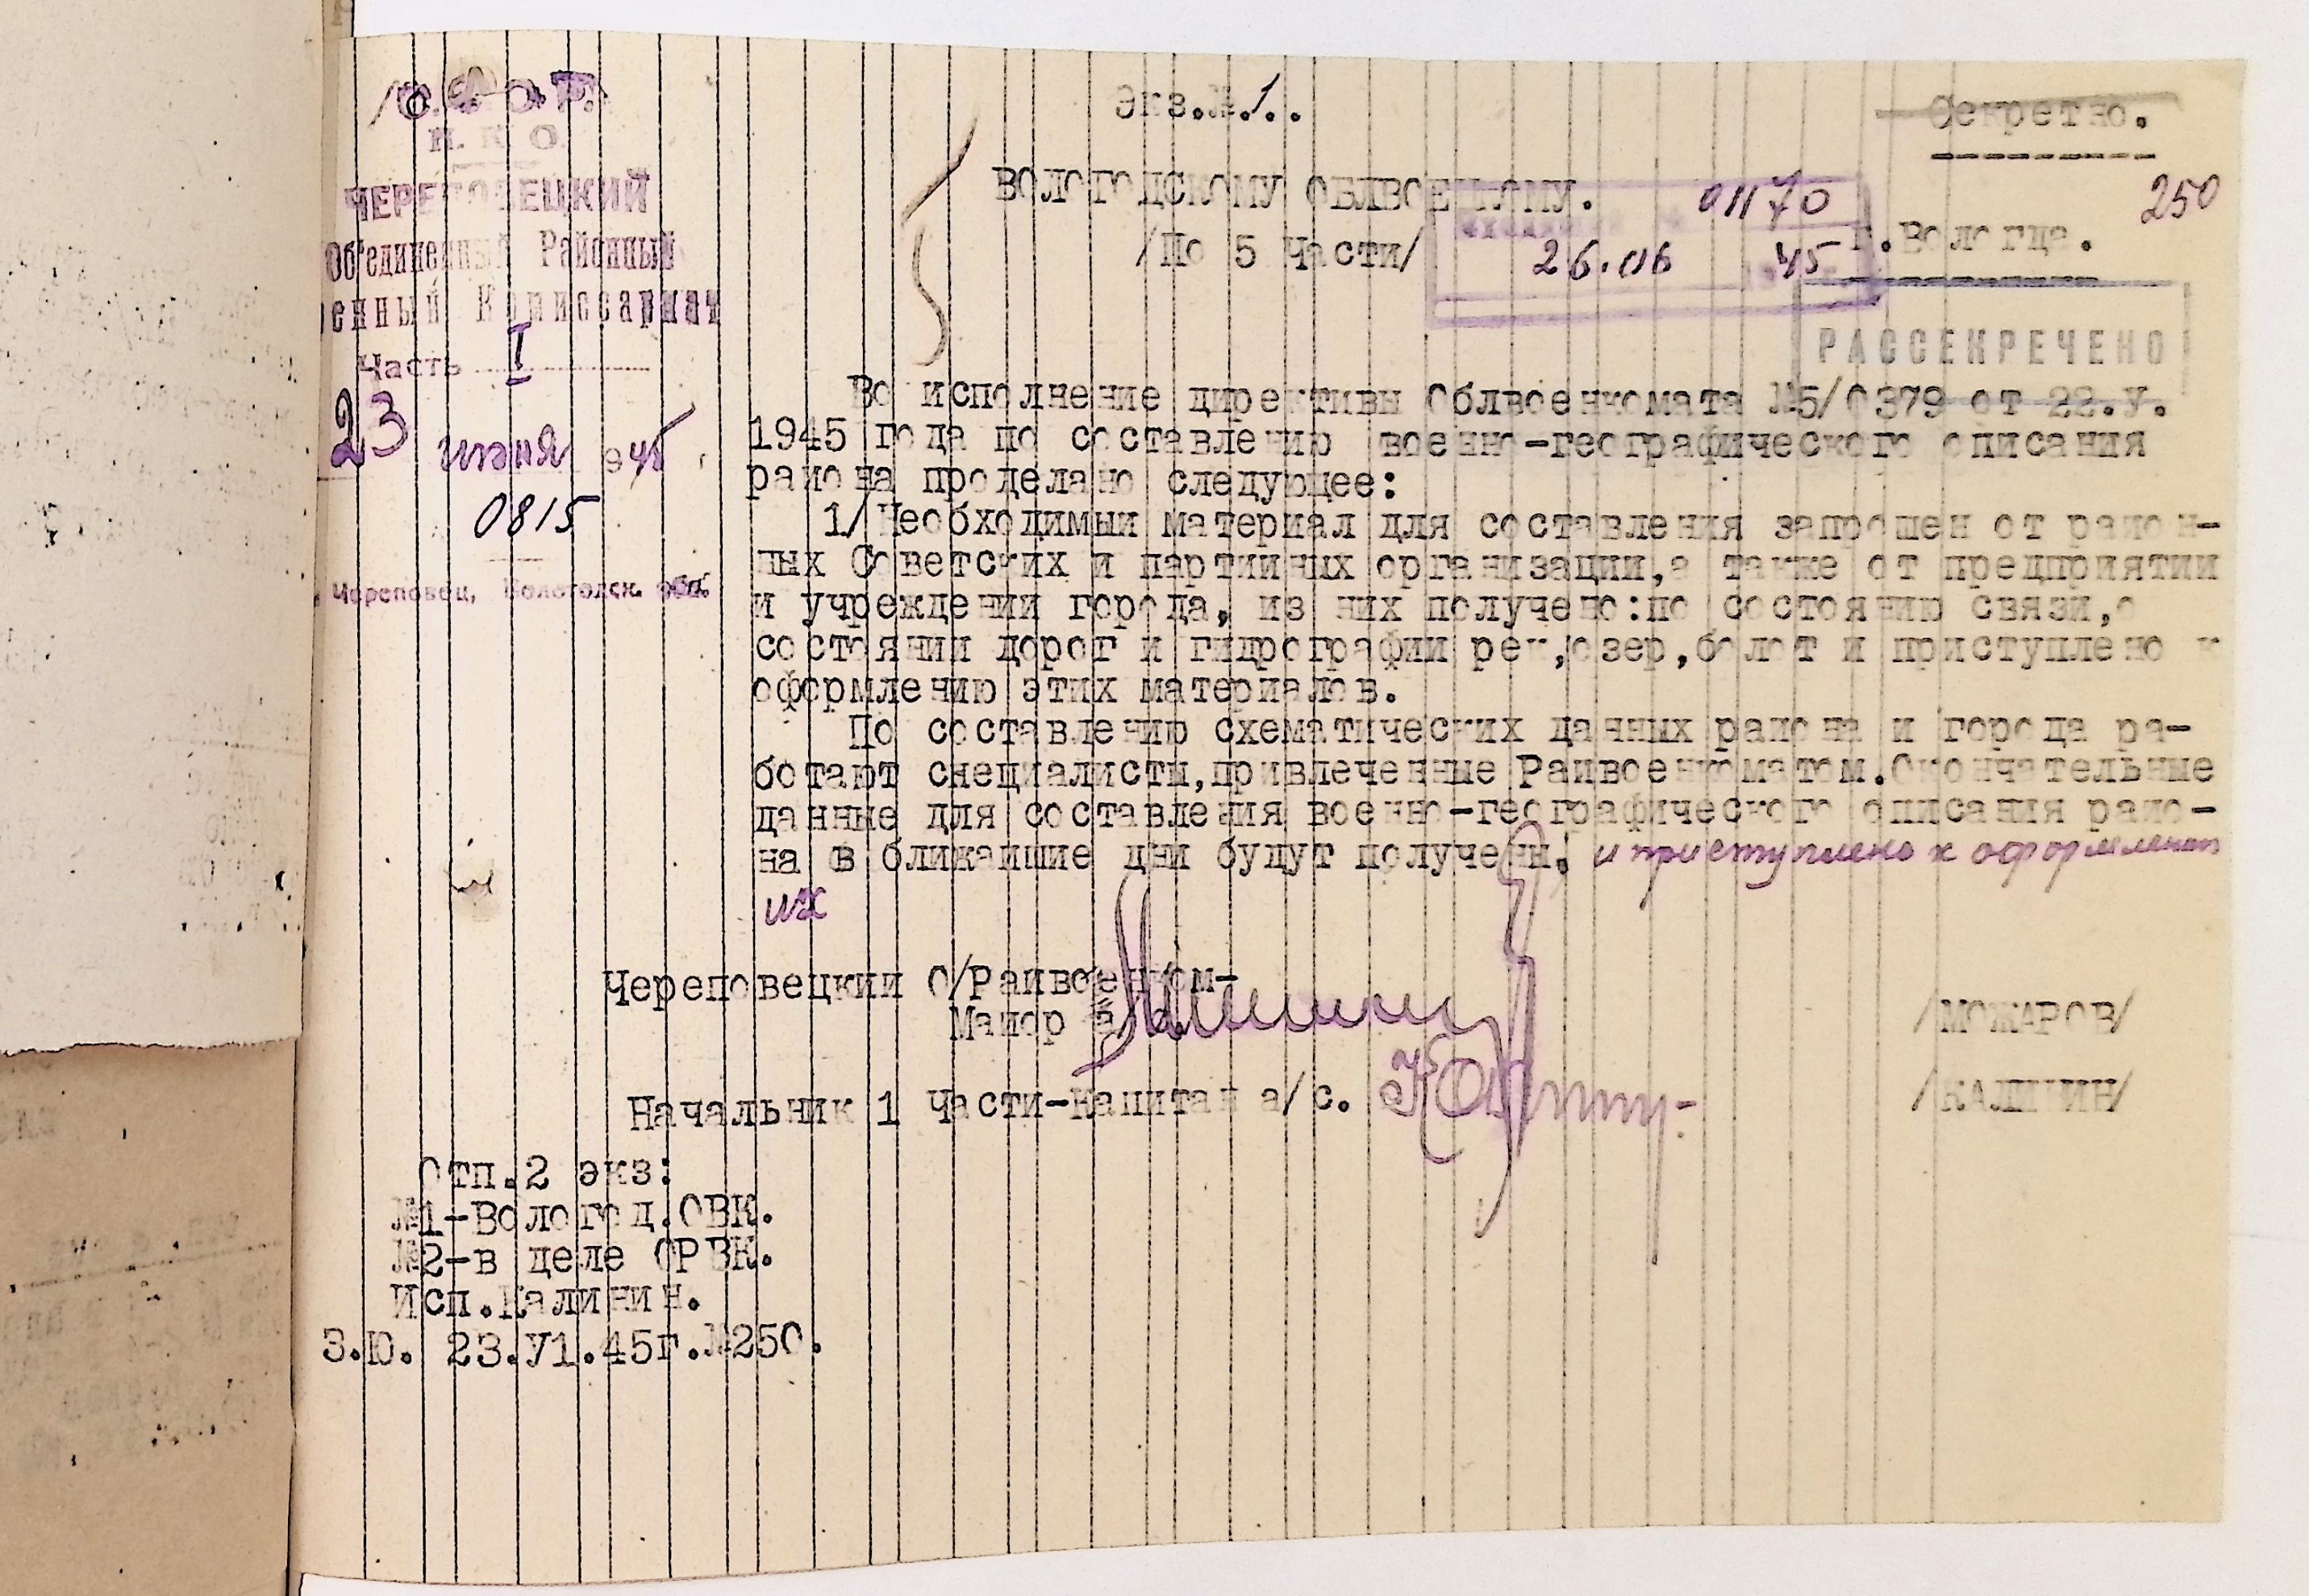 С.С.С.Р.
Н.К.О.
ЧЕРЕПОВЕЦКИЙ
Об'единенный Районный
енный Комиссариат
Часть I
23 июня 945
0815
Череповец, Вологодск. обл.
Экз.№.1..
Секретно.
ВОЛОГОДСКОМУ ОБЛВОЕНКОМУ.
01170
250
/По 5 Части/
26.06 45
г.Вологда.
РАССЕКРЕЧЕНО
Во исполнение директивы Облвоенкомата №5/0379 от 22.У.
1945 года по составлению военно-географического описания
района проделано следующее:
1/Необходимый материал для составления запрошен от район-
ных Советских и партийных организаций,а также от предприятий
и учреждений города, из них получено:по состоянию связи,о
состоянии дорог и гидрографии рек,озер,болот и приступлено к
оформлению этих материалов.
По составлению схематических данных района и города ра-
ботают специалисты,привлеченные Райвоенкоматом.Окончательные
данные для составления военно-географического описания райо-
на в ближайшие дни будут получены, и приступлено к оформлению
их
Череповецкий О/Райвоенком-
Майор а/с.
/МОЖАРОВ/
Начальник 1 части-Капитан а/с.
/КАЛИНИН/
Отп.2 экз:
№1-Вологод.ОВК.
№2-в деле ОРВК.
Исп.Калинин.
З.Ю. 23.У1.45г.№250.